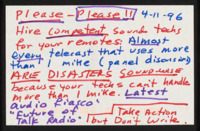 Please — Please!! 4-11-96
Hire competent sound techs
for your remotes: Almost
every telecast that uses more
than 1 mike (panel discussion)
ARE DISASTERS SOUND-WISE
because your techs can't handle
more than 1 mike. Latest
audio fiasco
"Future of
Talk Radio"
Take Action
but Don't Write.